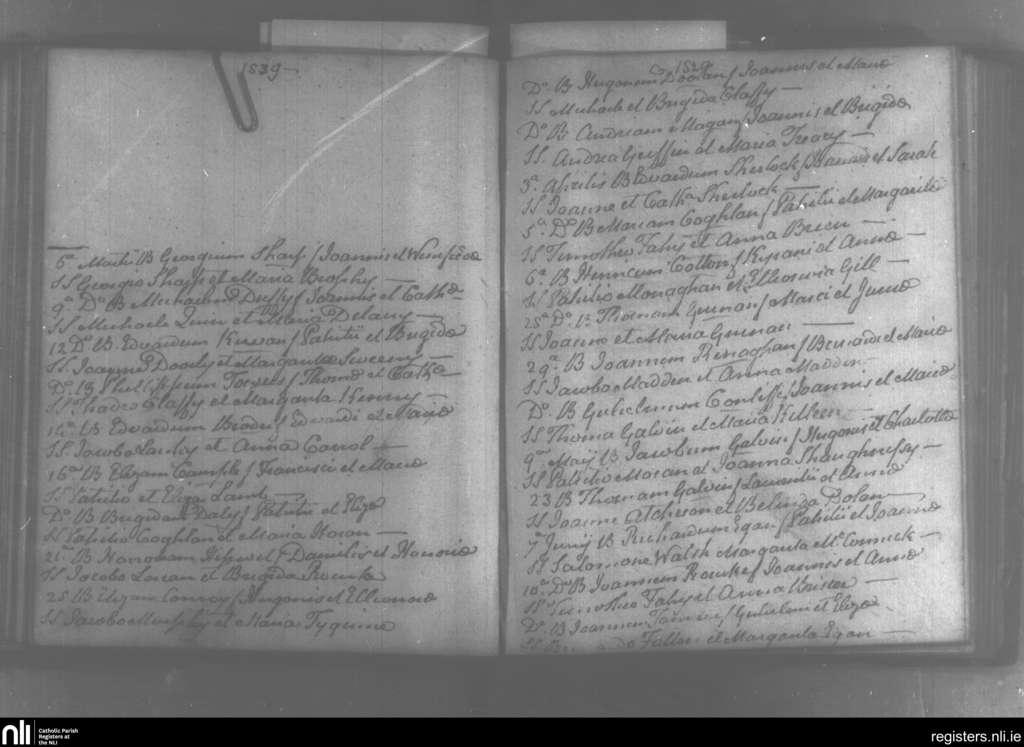 1839
5ª Martii B Georgium Sharp / Joannis et Winifredæ
SS Georgio Sharp et Maria Brophy
9ª Dº B Duffy / Joannis et Cathæ
SS Michaele Quin et Maria Delany
12 Dº B Eduardum Kirwan / Patritii et Brigidæ
SS Joanne Dooly et Margarita Sweeny
Dº B Philippum / Thomæ et Cathæ
SS Thadeo Claffy et Margarita Kenny
14ª B Edvardum / Edvardi et Mariæ
SS Jacobo et Anna Carrol
16ª B Elizam / Francisci et Mariæ
SS Patritio et Eliza Lamb
Dº B Brigidam Daly / Patritii et Elizæ
SS Patritio Coghlan et Maria Horan
21ª B Honoram / Danielis et Honoriæ
SS Jacobo et Brigida Rourke
25 B Elizam Conroy / Hugonis et Elleonoræ
SS Jacobo Murphy et Maria
1839
Dº B Hugonem Doolan / Joannis et Mariæ
SS Michaele et Brigida Claffy
Dº B Andream Magan / Joannis et Brigidæ
SS. Andrea Griffin et Maria Treacy
3ª Aprilis B Edvardum Sherlock / Joannis et Sarah
SS Joanne et Cathª Sherlock
5ª Dº B Mariam Coghlan / Patritii et Margaritæ
SS Timotheo Fahy et Anna Brien
6ª B Cotton / et Annæ
SS Patritio Monaghan et Gill
25ª Dº B Thomam Guinan / Marci et
SS Joanne et Maria Guinan
29ª B Joannem / Bernardi et Mariæ
SS Jacobo Madden et Anna Madden
Dº B Gulielmum / Joannis et Mariæ
SS Thoma Galvin et Maria Killeen
9ª Maij B Jacobum Galvin / Hugonis et Charlottæ
SS Patritio Moran et Joanna Shaughnessy
23 B Thomam Galvin / Laurentii et Annæ
SS Joanne Atcheson et Belinda Dolan
7ª Junij B Richardum Egan / Patritii et Joannæ
SS Salomone Walsh Margarita McCormick
10ª Dº B Joannem Rourke / Joannis et Annæ
SS Timotheo Fahy et Anna
Dº B Joannem / Gulielmi et Elizæ
SS Fallon et Margarita Egan
nli
Catholic Parish
Registers at
the NLI
registers.nli.ie